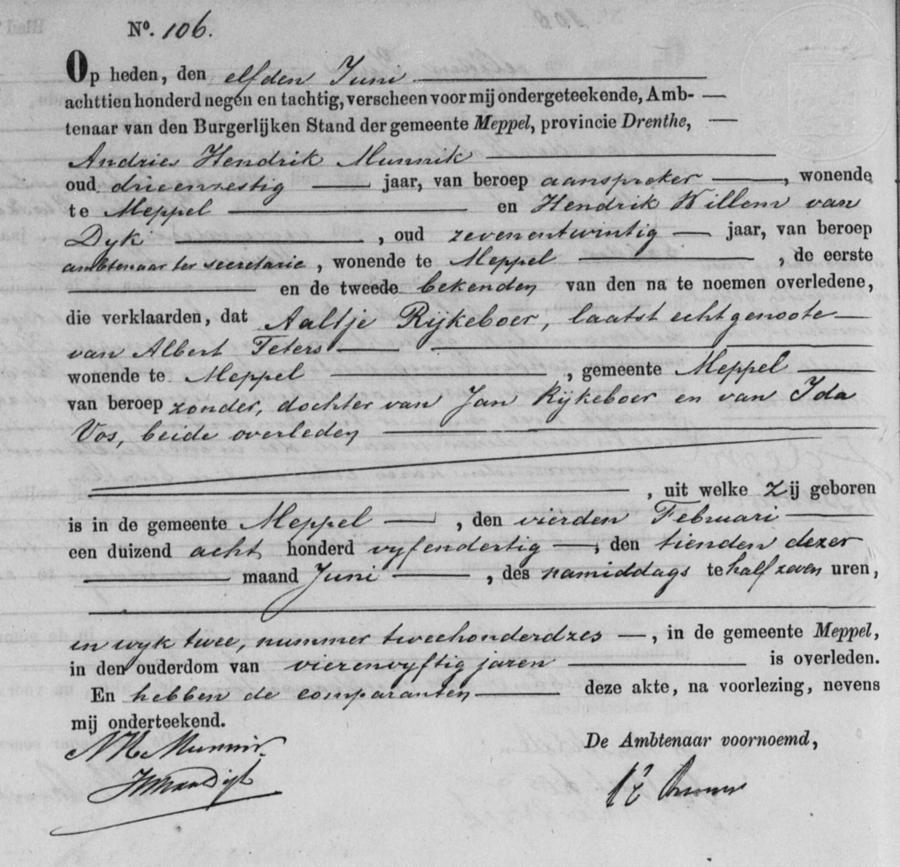 No. 106.
Op heden, den elfden Juni
achttien honderd negen en tachtig, verscheen voor mij ondergeteekende, Amb-
tenaar van den Burgerlijken Stand der gemeente Meppel, provincie Drenthe,
Andries Hendrik Munnik
oud drieenzestig jaar, van beroep aanspreker, wonende
te Meppel en Hendrik Willem van
Dyk, oud zevenentwintig jaar, van beroep
ambtenaar ter secretarie, wonende te Meppel, de eerste
en de tweede bekenden van den na te noemen overledene,
die verklaarden, dat Aaltje Rijkeboer, laatst echtgenoote
van Albert Peters
wonende te Meppel, gemeente Meppel
van beroep zonder, dochter van Jan Rijkeboer en van Ida
Vos, beide overleden
, uit welke zij geboren
is in de gemeente Meppel, den vierden Februari
een duizend acht honderd vyfendertig, den tienden dezer
maand Juni, des namiddags te half zeven uren,
in wyk twee, nummer tweehonderdzes, in de gemeente Meppel,
in den ouderdom van vierenvyftig jaren is overleden.
En hebben de comparanten deze akte, na voorlezing, nevens
mij onderteekend.
De Ambtenaar voornoemd,
AH Munnik
HWvanDijk